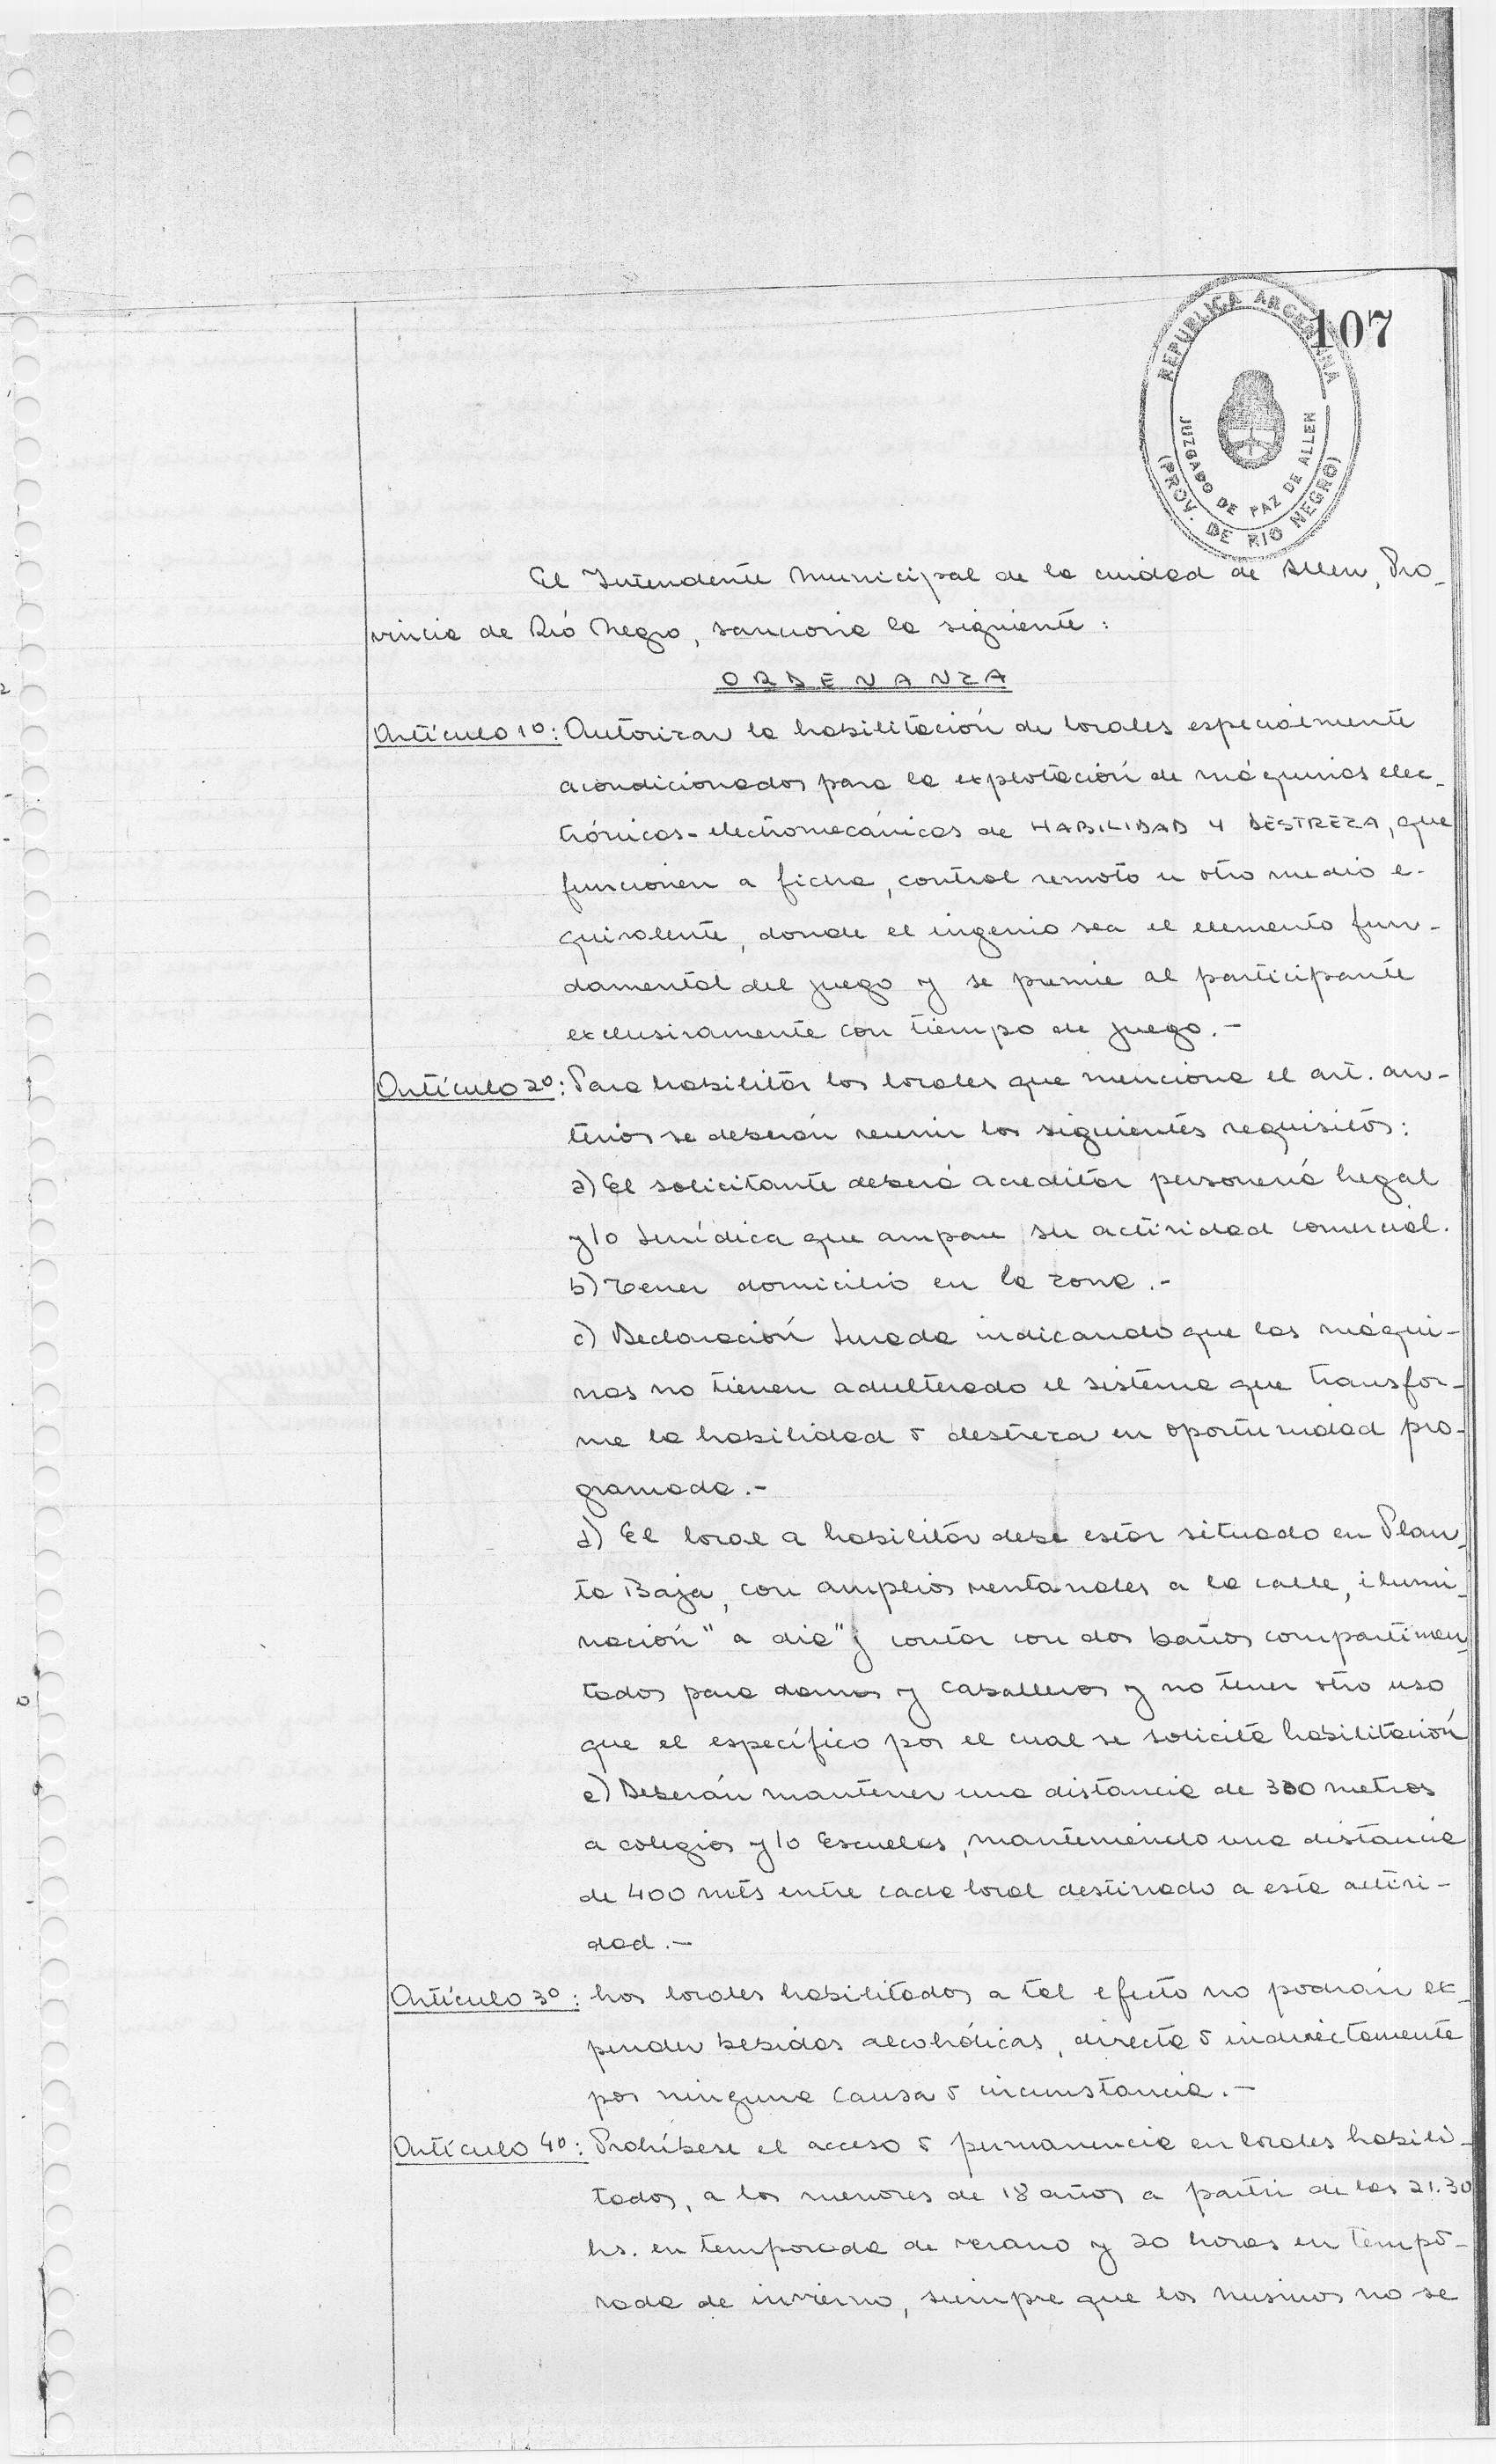 107
REPUBLICA ARGENTINA
JUZGADO DE PAZ DE ALLEN
(PROV. DE RIO NEGRO)
El Intendente Municipal de la ciudad de Allen, Pro-
vincia de Rió Negro, sanciona la siguiente:
ORDENANZA
Artículo 1º: Autorizar la habilitación de locales especialmente
acondicionados para la explotación de máquinas elec-
trónicas-electromecánicas de HABILIDAD Y DESTREZA, que
funcionen a ficha, control remoto u otro medio e-
quivalente, donde el ingenio sea el elemento fun-
damental del juego y se premie al participante
exclusivamente con tiempo de juego.-
Artículo 2º: Para habilitar los locales que menciona el art. an-
terior se deberán reunir los siguientes requisitos:
a) El solicitante deberá acreditar personería Legal
y/o Jurídica que ampare su actividad comercial.
b) Tener domicilio en la zona.-
c) Declaración Jurada indicando que las máqui-
nas no tienen adulterado el sistema que transfor-
me la habilidad ó destreza en oportunidad pro-
gramada.-
d) El local a habilitar debe estar situado en Plan-
ta Baja, con amplios ventanales a la calle, ilumi-
nación "a dia" y contar con dos baños compartimen-
tados para damas y caballeros y no tener otro uso
que el específico por el cual se solicita habilitación
e) Deberán mantener una distancia de 300 metros
a colegios y/o Escuelas, manteniendo una distancia
de 400 mts entre cada local destinado a esta activi-
dad.-
Artículo 3º: Los locales habilitados a tal efecto no podrán ex-
pender bebidas alcohólicas, directa ó indirectamente
por ninguna causa ó circunstancia.-
Artículo 4º: Prohíbese el acceso ó permanencia en locales habili-
tados, a los menores de 18 años a partir de las 21.30
hs. en temporada de verano y 20 horas en tempo-
rada de invierno, siempre que los mismos no se